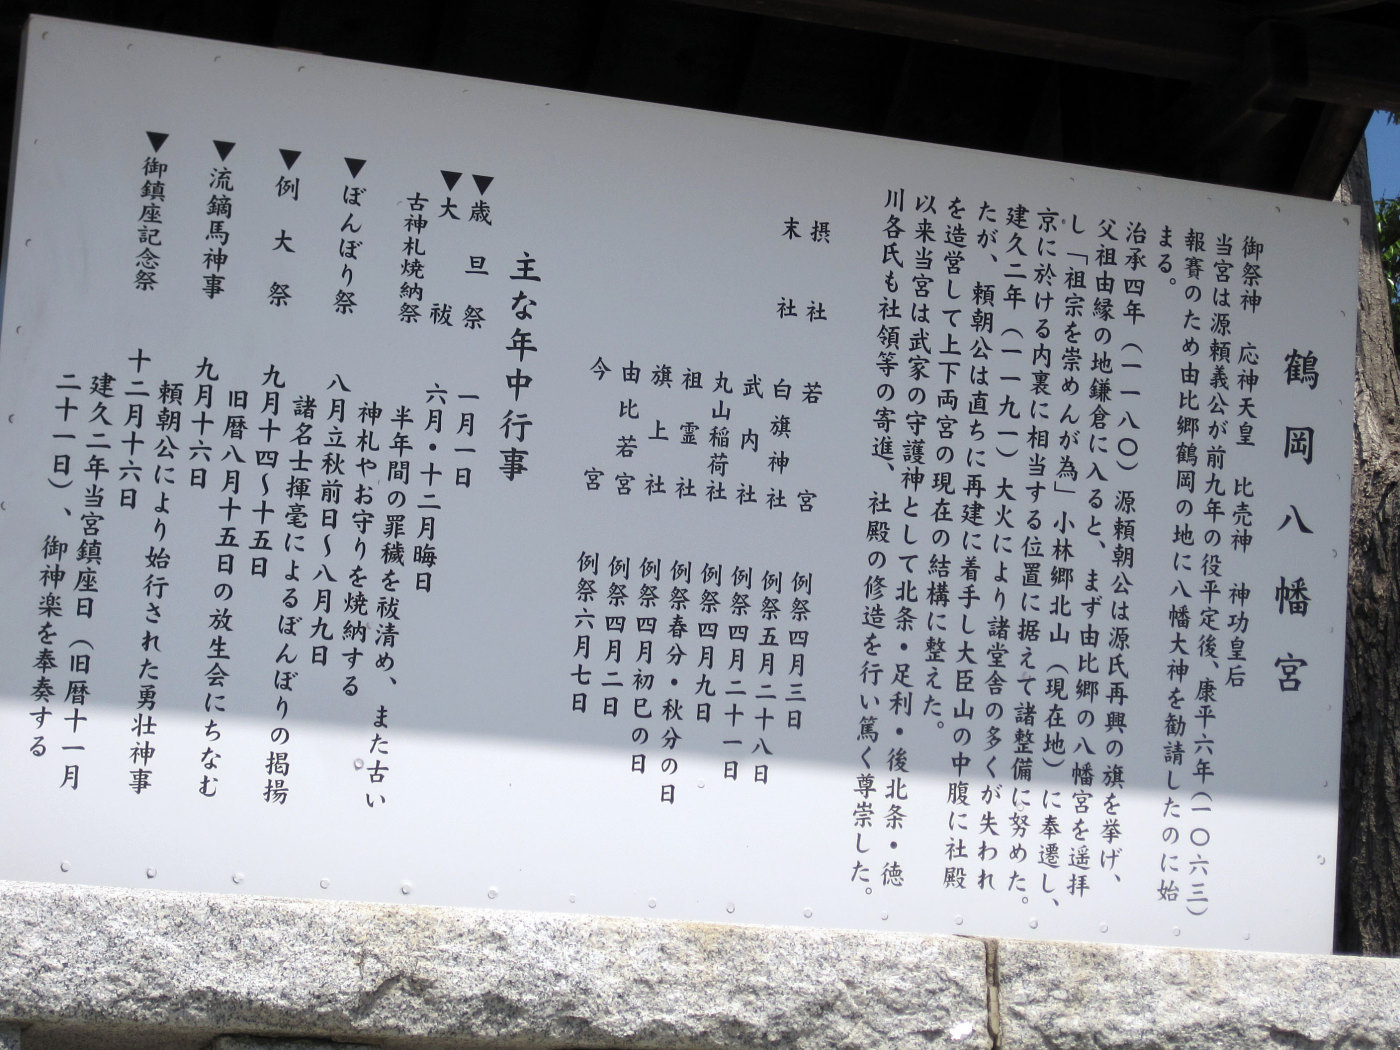 鶴岡八幡宮
御祭神　応神天皇　比売神　神功皇后
当宮は源頼義公が前九年の役平定後、康平六年（一〇六三）
報賽のため由比郷鶴岡の地に八幡大神を勧請したのに始
まる。
治承四年（一一八〇）源頼朝公は源氏再興の旗を挙げ、
父祖由縁の地鎌倉に入ると、まず由比郷の八幡宮を遥拝
し「祖宗を崇めんが為」小林郷北山（現在地）に奉遷し、
京に於ける内裏に相当する位置に据えて諸整備に努めた。
建久二年（一一九一）大火により諸堂舎の多くが失われ
たが、頼朝公は直ちに再建に着手し大臣山の中腹に社殿
を造営して上下両宮の現在の結構に整えた。
以来当宮は武家の守護神として北条・足利・後北条・徳
川各氏も社領等の寄進、社殿の修造を行い篤く尊崇した。
摂社　若宮　例祭四月三日
末社　白旗神社　例祭五月二十八日
武内社　例祭四月二十一日
丸山稲荷社　例祭四月九日
祖霊社　例祭春分・秋分の日
旗上社　例祭四月初巳の日
由比若宮　例祭四月二日
今宮　例祭六月七日
主な年中行事
▼歳旦祭　一月一日
▼大祓　六月・十二月晦日
古神札焼納祭　半年間の罪穢を祓清め、また古い
神札やお守りを焼納する
▼ぼんぼり祭　八月立秋前日〜八月九日
諸名士揮毫によるぼんぼりの掲揚
▼例大祭　九月十四〜十五日
旧暦八月十五日の放生会にちなむ
▼流鏑馬神事　九月十六日
頼朝公により始行された勇壮神事
▼御鎮座記念祭　十二月十六日
建久二年当宮鎮座日（旧暦十一月
二十一日）、御神楽を奉奏する